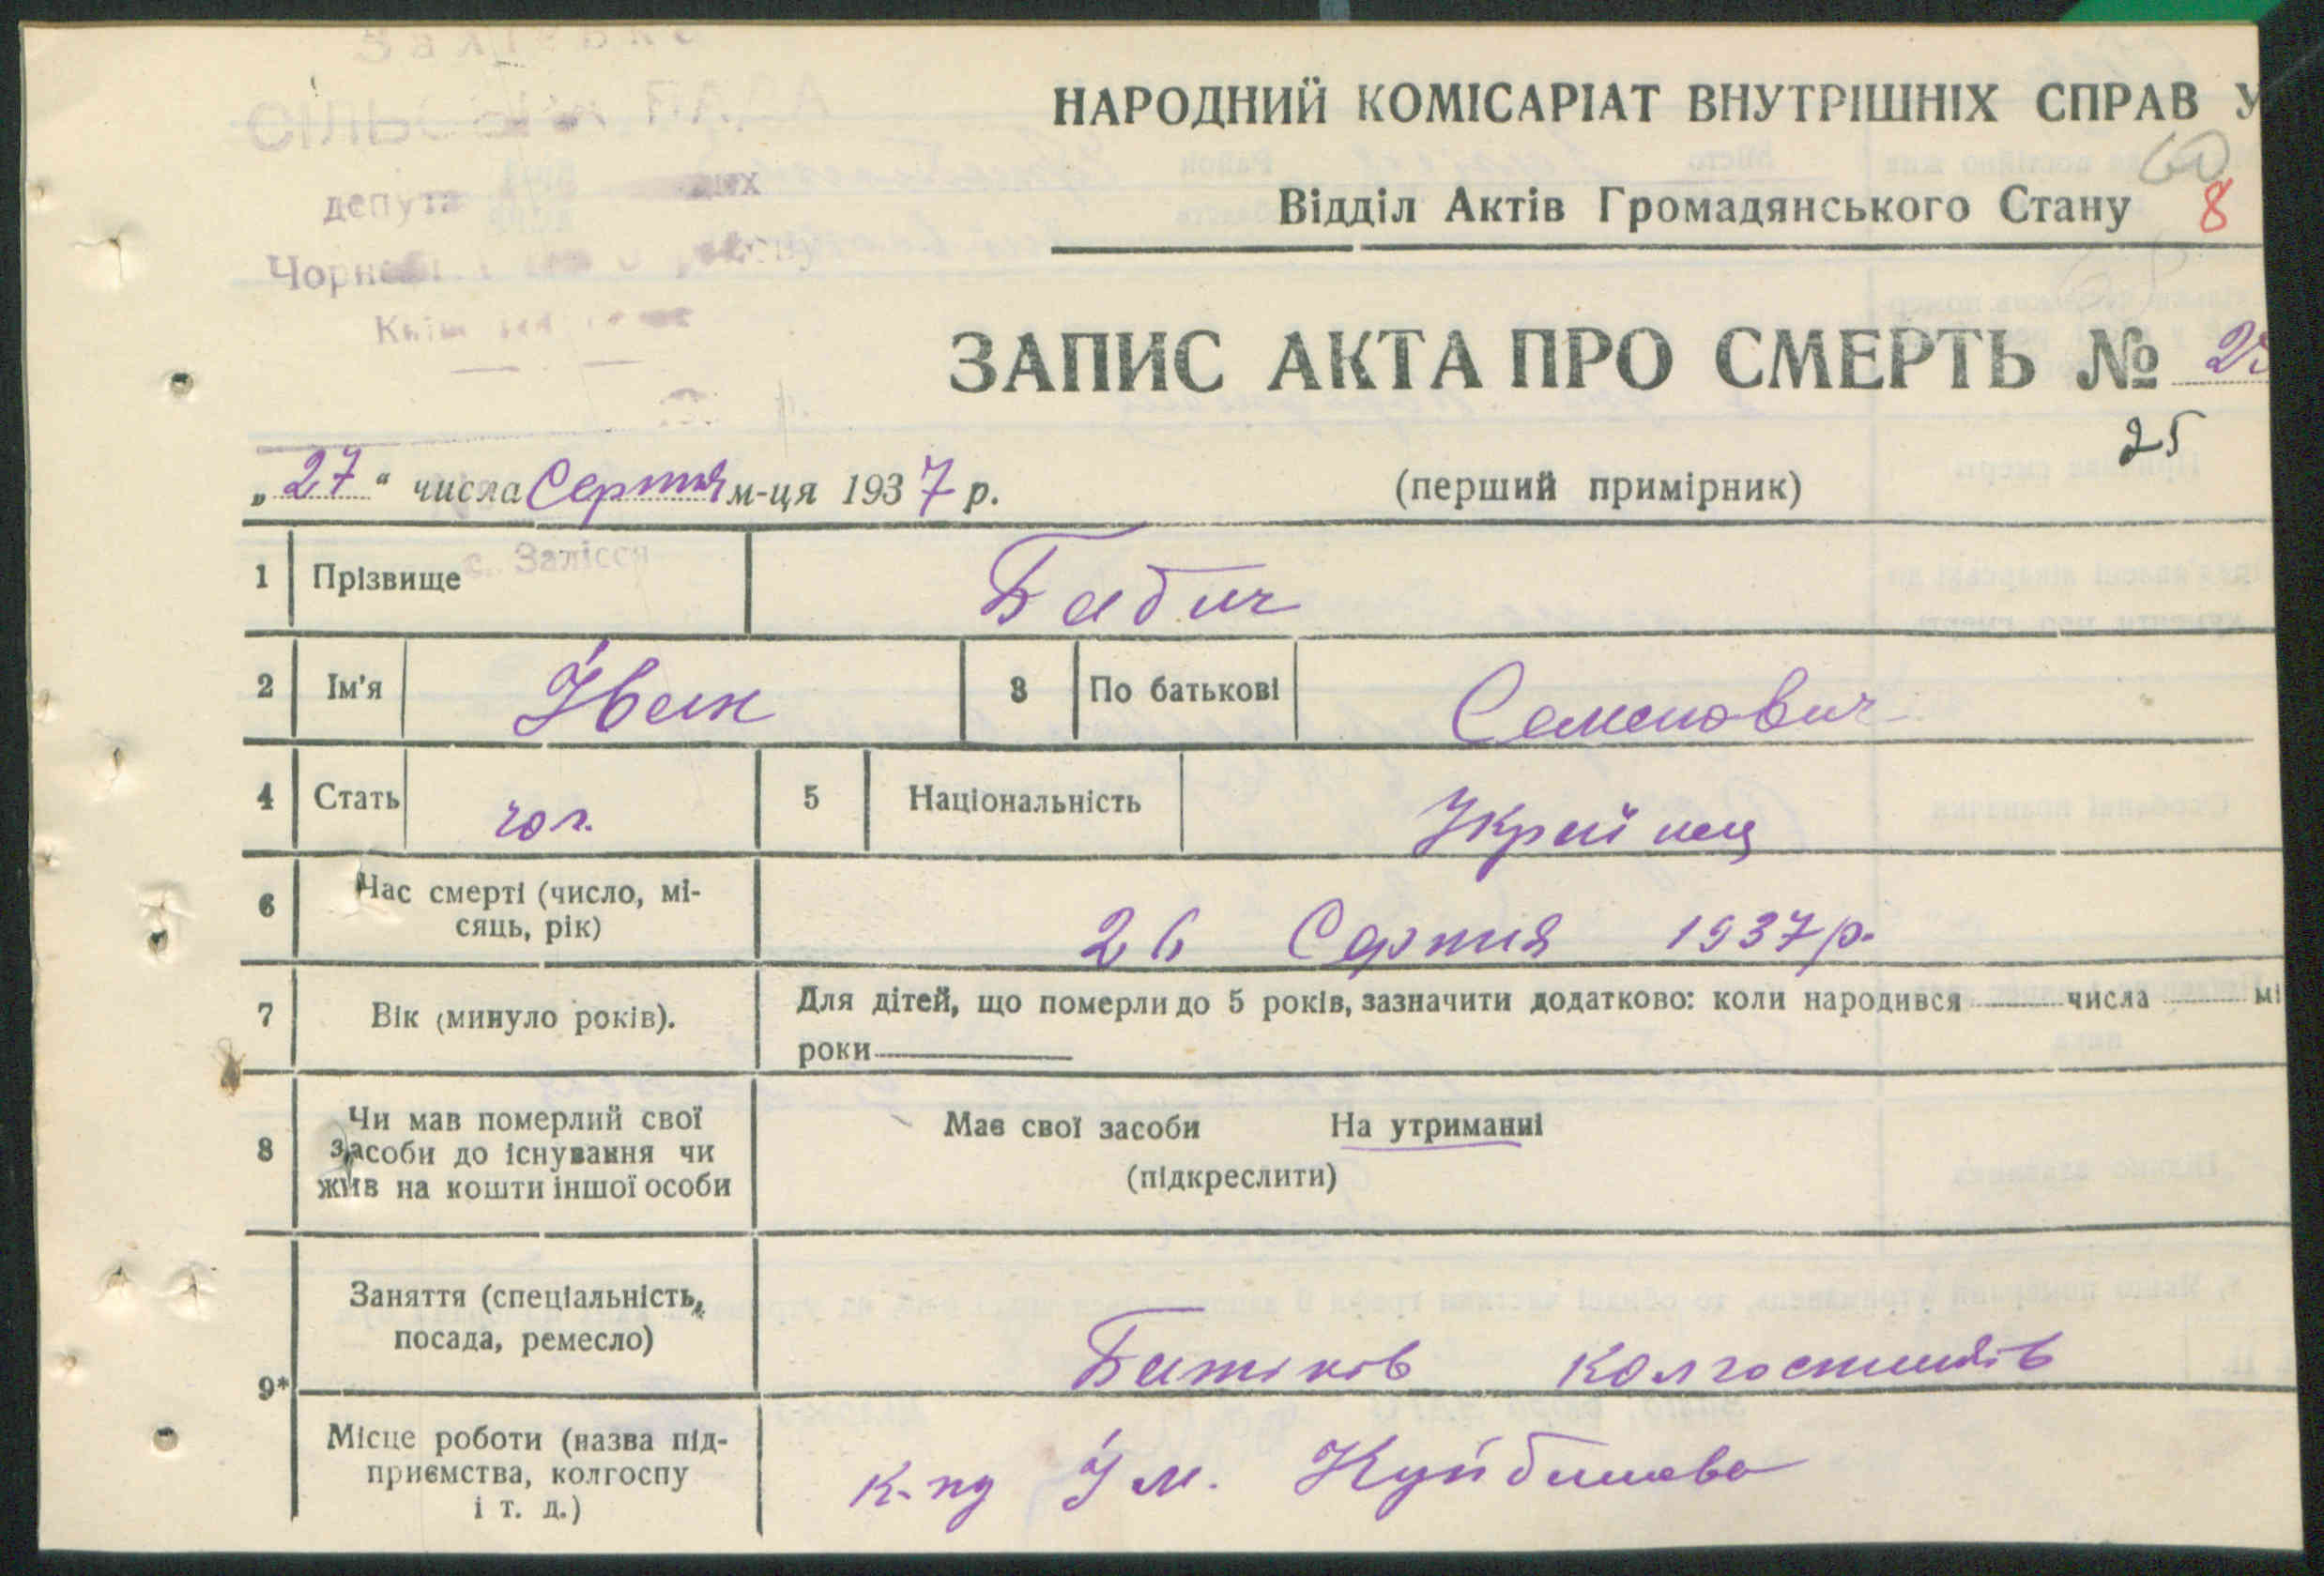 СІЛЬСЬКА РАДА
НАРОДНИЙ КОМІСАРІАТ ВНУТРІШНІХ СПРАВ У
60
Відділ Актів Громадянського Стану 8
ЗАПИС АКТА ПРО СМЕРТЬ № 25
25
„27“ числа Серпня м-ця 1937 р. (перший примірник)
с. Залісся
1 Прізвище Бабич
2 Ім'я Іван 3 По батькові Семенович
4 Стать чол. 5 Національність Українец
6 Час смерті (число, мі-
сяць, рік) 26 Серпня 1937 р.
7 Вік (минуло років). Для дітей, що померли до 5 років, зазначити додатково: коли народився числа мі
роки
8 Чи мав померлий свої
засоби до існування чи
жив на кошти іншої особи
Має свої засоби На утриманні
(підкреслити)
9* Заняття (спеціальність,
посада, ремесло) Батьків колгоспників
Місце роботи (назва під-
приємства, колгоспу
і т. д.) к-пу Ім. Куйбишева